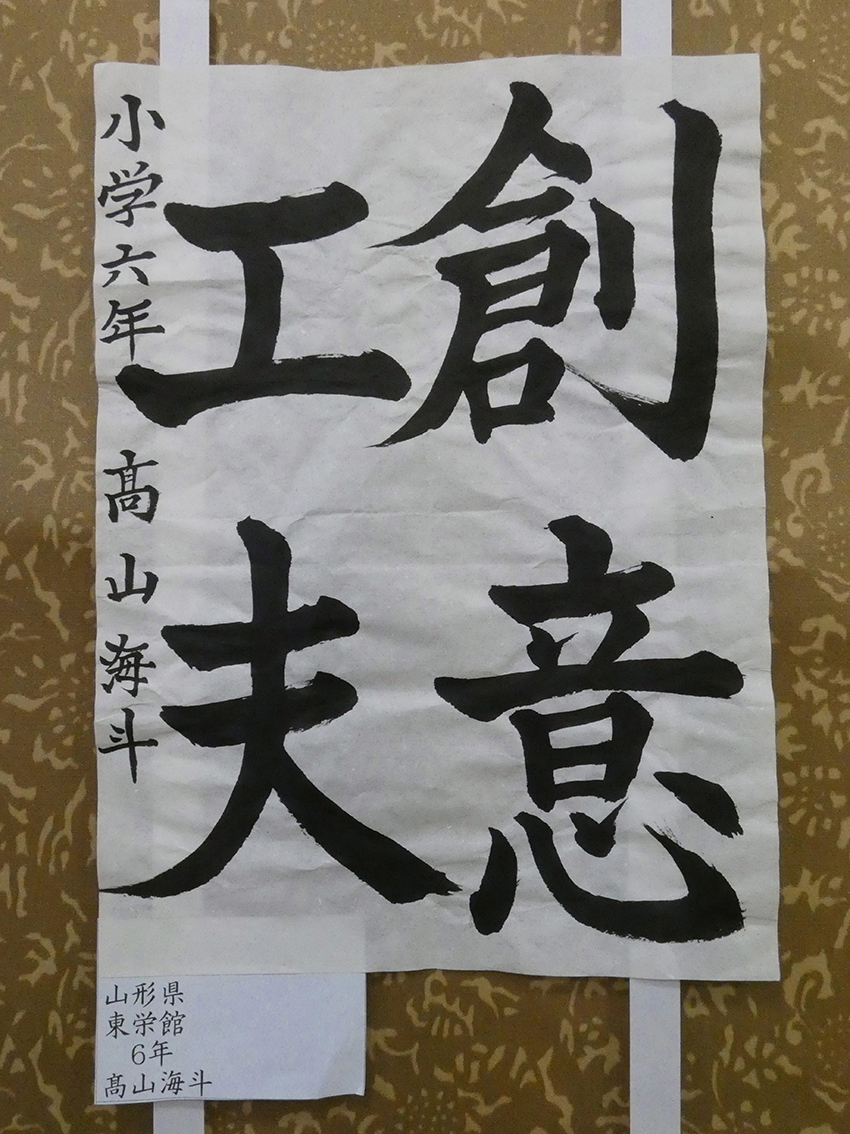 創意
工夫
小学六年 髙山海斗
山形県
東栄館
6年
髙山海斗